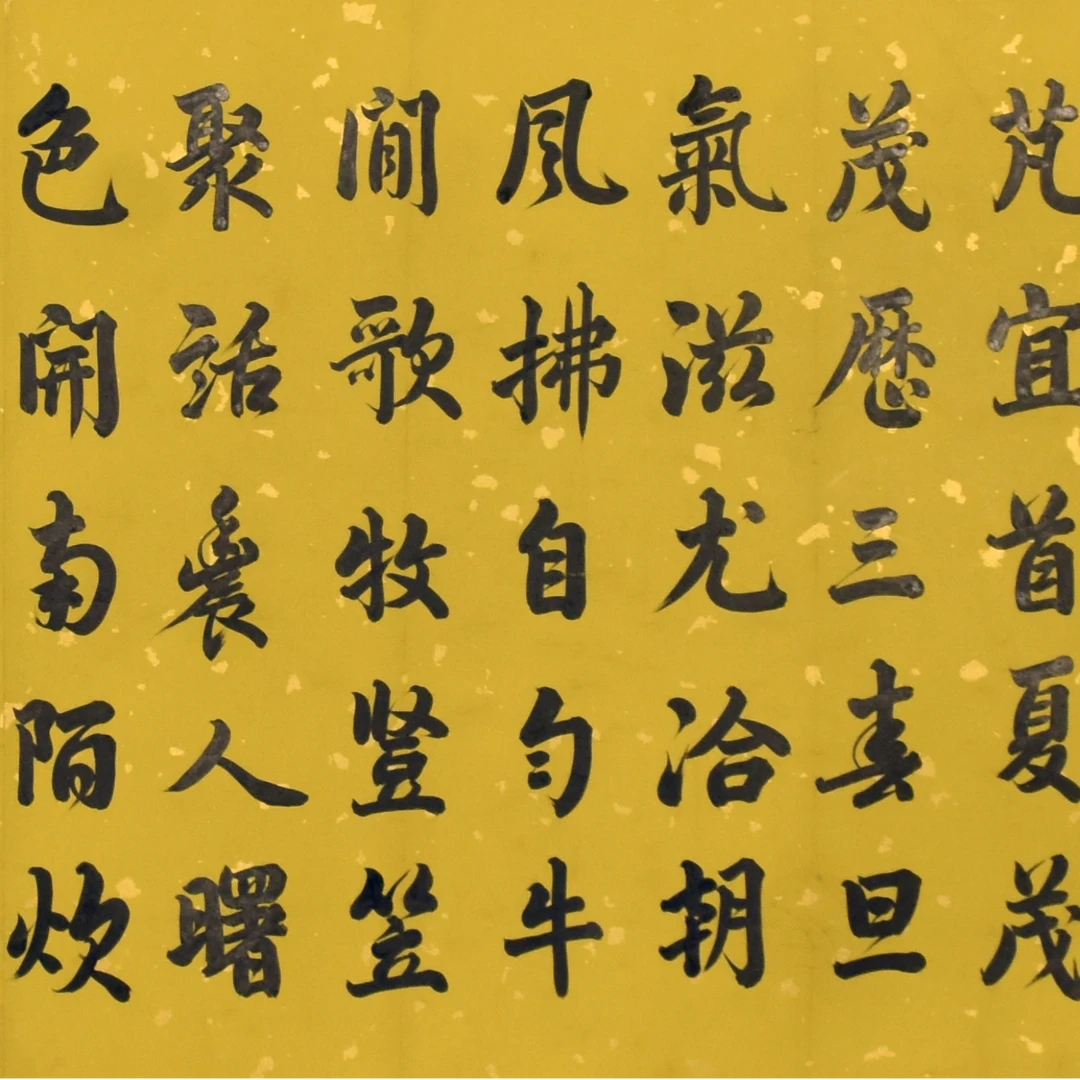 芃宜首夏茂
茂歷三春旦
氣滋尤洽朝
風拂自勻牛
閒歌牧豎笠
聚話農人曙
色開南陌炊